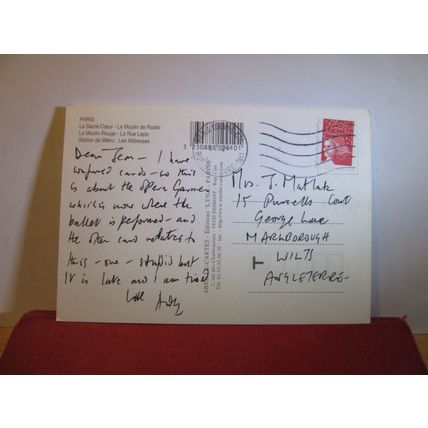 PARIS
Le Sacré-Cœur - Le Moulin de Radet
Le Moulin Rouge - La Rue Lepic
Station du Métro - Les Abbesses
Dear Jean - I have
confused cards - so this
is about the Opera Garnier
which is now where the
ballet is performed - and
the other card relates to
this - one - stupid but
it is late and I am tired
love Andy
ABEILLE-CARTES - Editions "LYNA-PARIS"
Mrs. J. Matlak
15 Court
George Lane
MARLBOROUGH
WILTS
ANGLETERRE
T